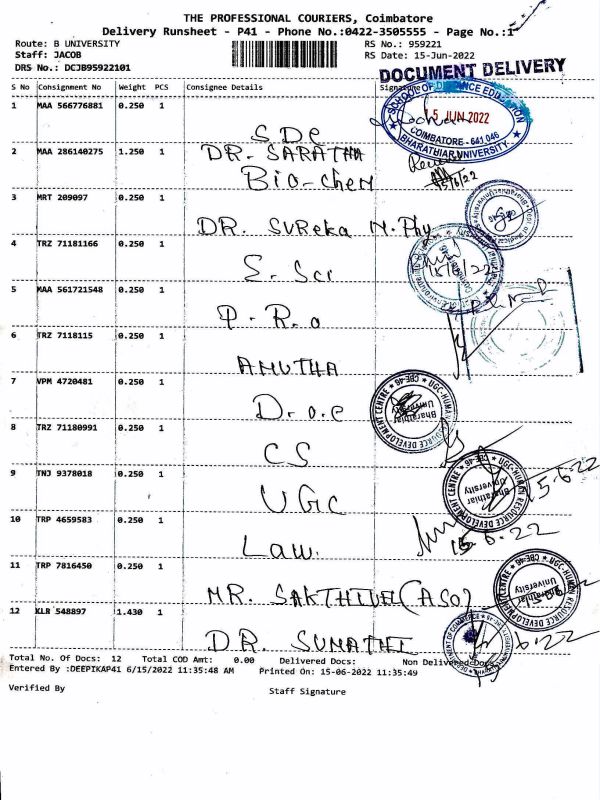 THE PROFESSIONAL COURIERS, Coimbatore
Delivery Runsheet - P41 - Phone No.:0422-3505555 - Page No.:1
Route: B UNIVERSITY
RS No.: 959221
Staff: JACOB
RS Date: 15-Jun-2022
DRS No.: DCJB95922101
DOCUMENT DELIVERY
S No Consignment No Weight PCS Consignee Details
1 MAA 566776881 0.250 1
SCHOOL OF DISTANCE EDUCATION
15 JUN 2022
COIMBATORE - 641 046
BHARATHIAR UNIVERSITY
SDE
2 MAA 286140275 1.250 1
DR. SARATHA
Bio-chem
15/6/22
3 MRT 209097 0.250 1
DR. SUReka M.Phy
4 TRZ 71181166 0.250 1
S. Sci
15/6/22
5 MAA 561721548 0.250 1
P.R.o
6 TRZ 7118115 0.250 1
AMUTHA
7 VPM 4720481 0.250 1
D.o.e
UGC-HUMAN RESOURCE DEVELOPMENT CENTRE
Bharathiar University
CBE-46
8 TRZ 71180991 0.250 1
CS
9 TNJ 9378018 0.250 1
UGC
UGC-HUMAN RESOURCE DEVELOPMENT CENTRE
Bharathiar University
15.6.22
10 TRP 4659583 0.250 1
Law.
15.6.22
11 TRP 7816450 0.250 1
MR. SAKTHIVEL (ASO)
UGC-HUMAN RESOURCE DEVELOPMENT CENTRE
Bharathiar University
CBE-46
12 KLR 548897 1.430 1
DR. SUMATHI
Total No. Of Docs: 12 Total COD Amt: 0.00 Delivered Docs: Non Delivered Docs
Entered By :DEEPIKAP41 6/15/2022 11:35:48 AM Printed On: 15-06-2022 11:35:49
Verified By
Staff Signature